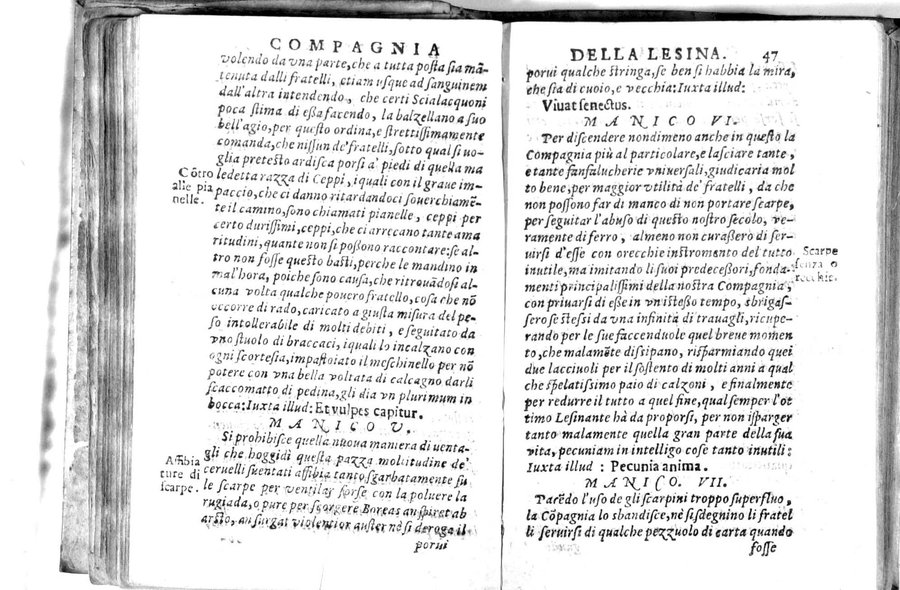 COMPAGNIA
volendo da vna parte, che a tutta posta sia mã-
tenuta dalli fratelli, etiam usque ad sanguinem
dall'altra intendendo, che certi Scialacquoni
poca stima di essa facendo, la balzellano a suo
bell'agio, per questo ordina, e strettissimamente
comanda, che nissun de' fratelli, sotto qual si uo-
glia pretesto ardisca porsi a' piedi di quella ma
ledetta razza di Ceppi, i quali con il graue im-
paccio, che ci danno ritardandoci souerchiamẽ-
te il camino, sono chiamati pianelle, ceppi per
certo durissimi, ceppi, che ci arrecano tante ama
ritudini, quante non si possono raccontare: se al-
tro non fosse questo basti, perche le mandino in
mal'hora, poiche sono causa, che ritrouãdosi al-
cuna volta qualche pouero fratello, cosa che nõ
occorre di rado, caricato a giusta misura del pe-
so intollerabile di molti debiti, e seguitato da
vno stuolo di braccaci, i quali lo incalzano con
ogni scortesia, impastoiato il meschinello per nõ
potere con vna bella voltata di calcagno darli
scaccomatto di pedina, gli dia vn plurimum in
bocca: Iuxta illud: Et vulpes capitur.
Cõtro
alle pia
nelle.
MANICO V.
Si prohibisce quella nuoua maniera di uenta-
gli che hoggidi questa pazza moltitudine de'
ceruelli suentati affibia tanto sgarbatamente su
le scarpe per ventilar forse con la poluere la
rugiada, o pure per scorgere Boreas an spiret ab
arcto, an surgat violentior auster nè si deroga il
Affibia
ture di
scarpe.
porui
DELLA LESINA. 47
porui qualche stringa, se ben si habbia la mira,
che sia di cuoio, e vecchia: Iuxta illud:
Viuat senectus.
MANICO VI.
Per discendere nondimeno anche in questo la
Compagnia più al particolare, e lasciare tante,
e tante fanfalucherie vniuersali, giudicaria mol
to bene, per maggior vtilità de' fratelli, da che
non possono far di manco di non portare scarpe,
per seguitar l'abuso di questo nostro secolo, ve-
ramente di ferro, almeno non curassero di ser-
uirsi d'esse con orecchie instromento del tutto
inutile, ma imitando li suoi predecessori, fonda-
menti principalissimi della nostra Compagnia,
con priuarsi di esse in vn istesso tempo, sbrigas-
sero se stessi da vna infinità di trauagli, ricupe-
rando per le sue faccenduole quel breue momen
to, che malamẽte dissipano, risparmiando quei
due lacciuoli per il sostento di molti anni a qual
che spelatissimo paio di calzoni, e finalmente
per redurre il tutto a quel fine, qual semper l'ot
timo Lesinante hà da proporsi, per non isparger
tanto malamente quella gran parte della sua
vita, pecuniam in intelligo cose tanto inutili:
Iuxta illud: Pecunia anima.
Scarpe
senza o
recchie.
MANICO. VII.
Parẽdo l'uso de gli scarpini troppo superfluo,
la Cõpagnia lo sbandisce, nè si sdegnino li fratel
li seruirsi di qualche pezzuolo di carta quando
fosse